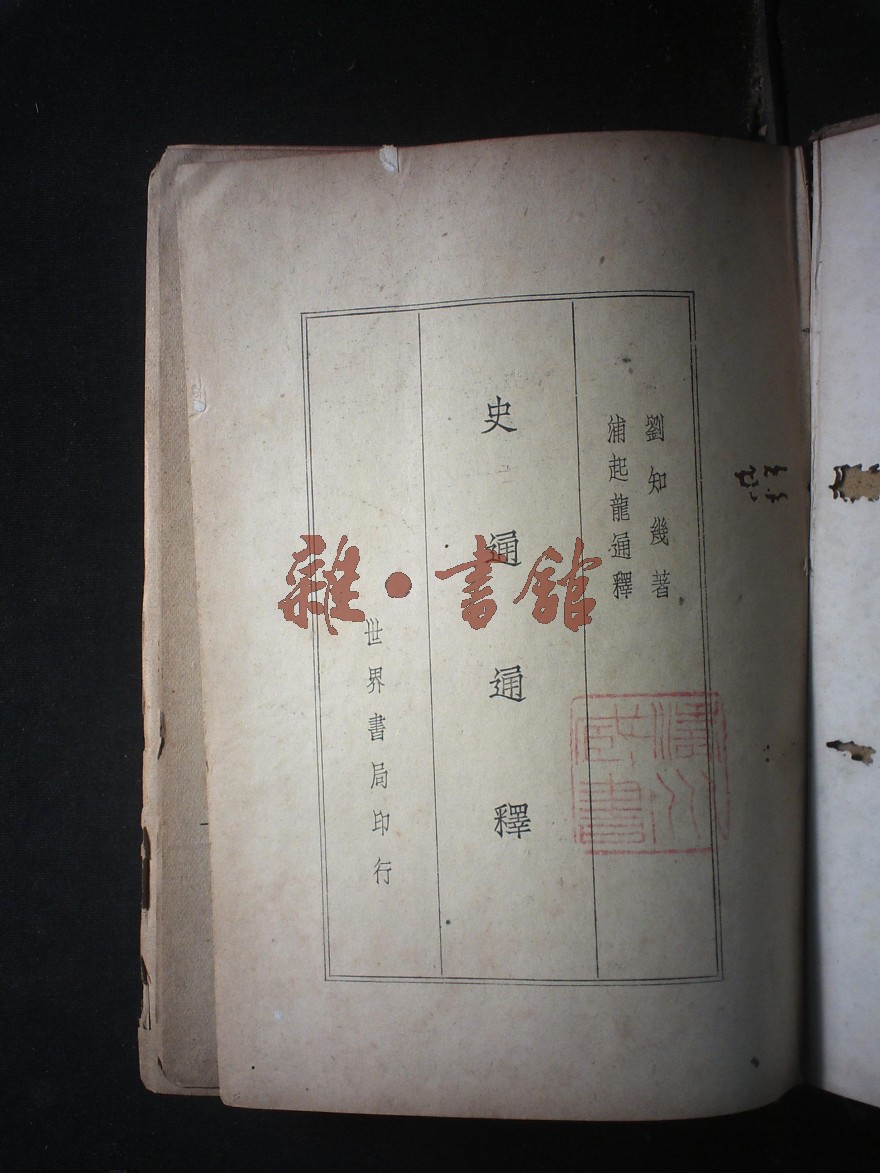 劉知幾著
浦起龍通釋
史通通釋
世界書局印行
雜·書館